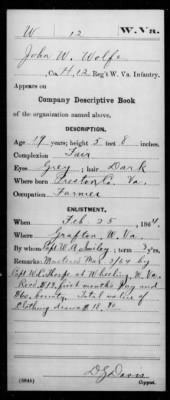 W 12 W. Va.
John W. Wolfe
Co. H, 12 Reg't W. Va. Infantry.
Appears on
Company Descriptive Book
of the organization named above.
DESCRIPTION.
Age 19 years; height 5 feet 8 inches.
Complexion Fair
Eyes Grey; hair Dark
Where born Preston Co. Va.
Occupation Farmer
ENLISTMENT.
When Feb 25, 1864.
Where Grafton, W. Va.
By whom Capt W. A. Smiley; term 3 y'rs.
Remarks: Mustered Mar 3/64 by
Capt W. C. Thorpe at Wheeling, W. Va.
Recd $13, first months pay and
bounty. Total value of
Clothing drawn $
D S Davis
Copyist.